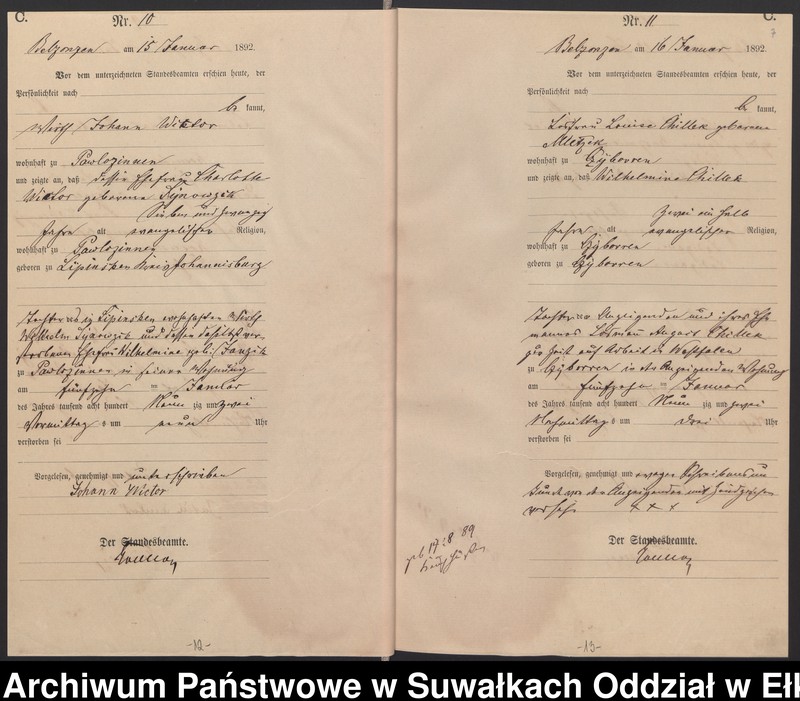 C.
Nr. 10
Belzonzen am 15 Januar 1892.
Vor dem unterzeichneten Standesbeamten erschien heute, der
Persönlichkeit nach
be kannt,
Wirth Johann Wiktor
wohnhaft zu Pawlozinnen
und zeigte an, daß dessen Ehefrau Charlotte
Wictor geborene
Sieben und zwanzig
Jahre alt evangelischer Religion,
wohnhaft zu Pawlozinnen
geboren zu Lipinsken Kreis Johannisburg
Tochter des in Lipinsken wohnhaften Wirth
Wilhelm und dessen daselbst ver-
storbenen Ehefrau Wilhelmine geb.
zu Pawlozinnen in seiner Wohnung
am fünfzehn = Januar
des Jahres tausend acht hundert Neun zig und zwei
Vormittag s um neun Uhr
verstorben sei
Vorgelesen, genehmigt und unterschrieben
Johann Wictor
Der Standesbeamte.
-12-
C.
7
Nr. 11
Belzonzen am 16 Januar 1892.
Vor dem unterzeichneten Standesbeamten erschien heute, der
Persönlichkeit nach
be kannt,
Losfrau Louise Chillek geborene
wohnhaft zu Gyborren
und zeigte an, daß Wilhelmine Chillek
zwei ein halb
Jahre alt evangelischer Religion,
wohnhaft zu Gyborren
geboren zu Gyborren
Tochter der Anzeigenden und ihres Ehe
mannes Losmann August Chillek
zur Zeit auf Arbeit in Westfalen
zu Gyborren in der Anzeigenden Wohnung
am fünfzehn = Januar
des Jahres tausend acht hundert Neun zig und zwei
Nachmittag s um drei Uhr
verstorben sei
Vorgelesen, genehmigt und wegen Schreibensun
kunde von der Anzeigenden mit Handzeichen
versehen + + +
Der Standesbeamte.
geb 89
-13-
Archiwum Państwowe w Suwałkach Oddział w Ełk